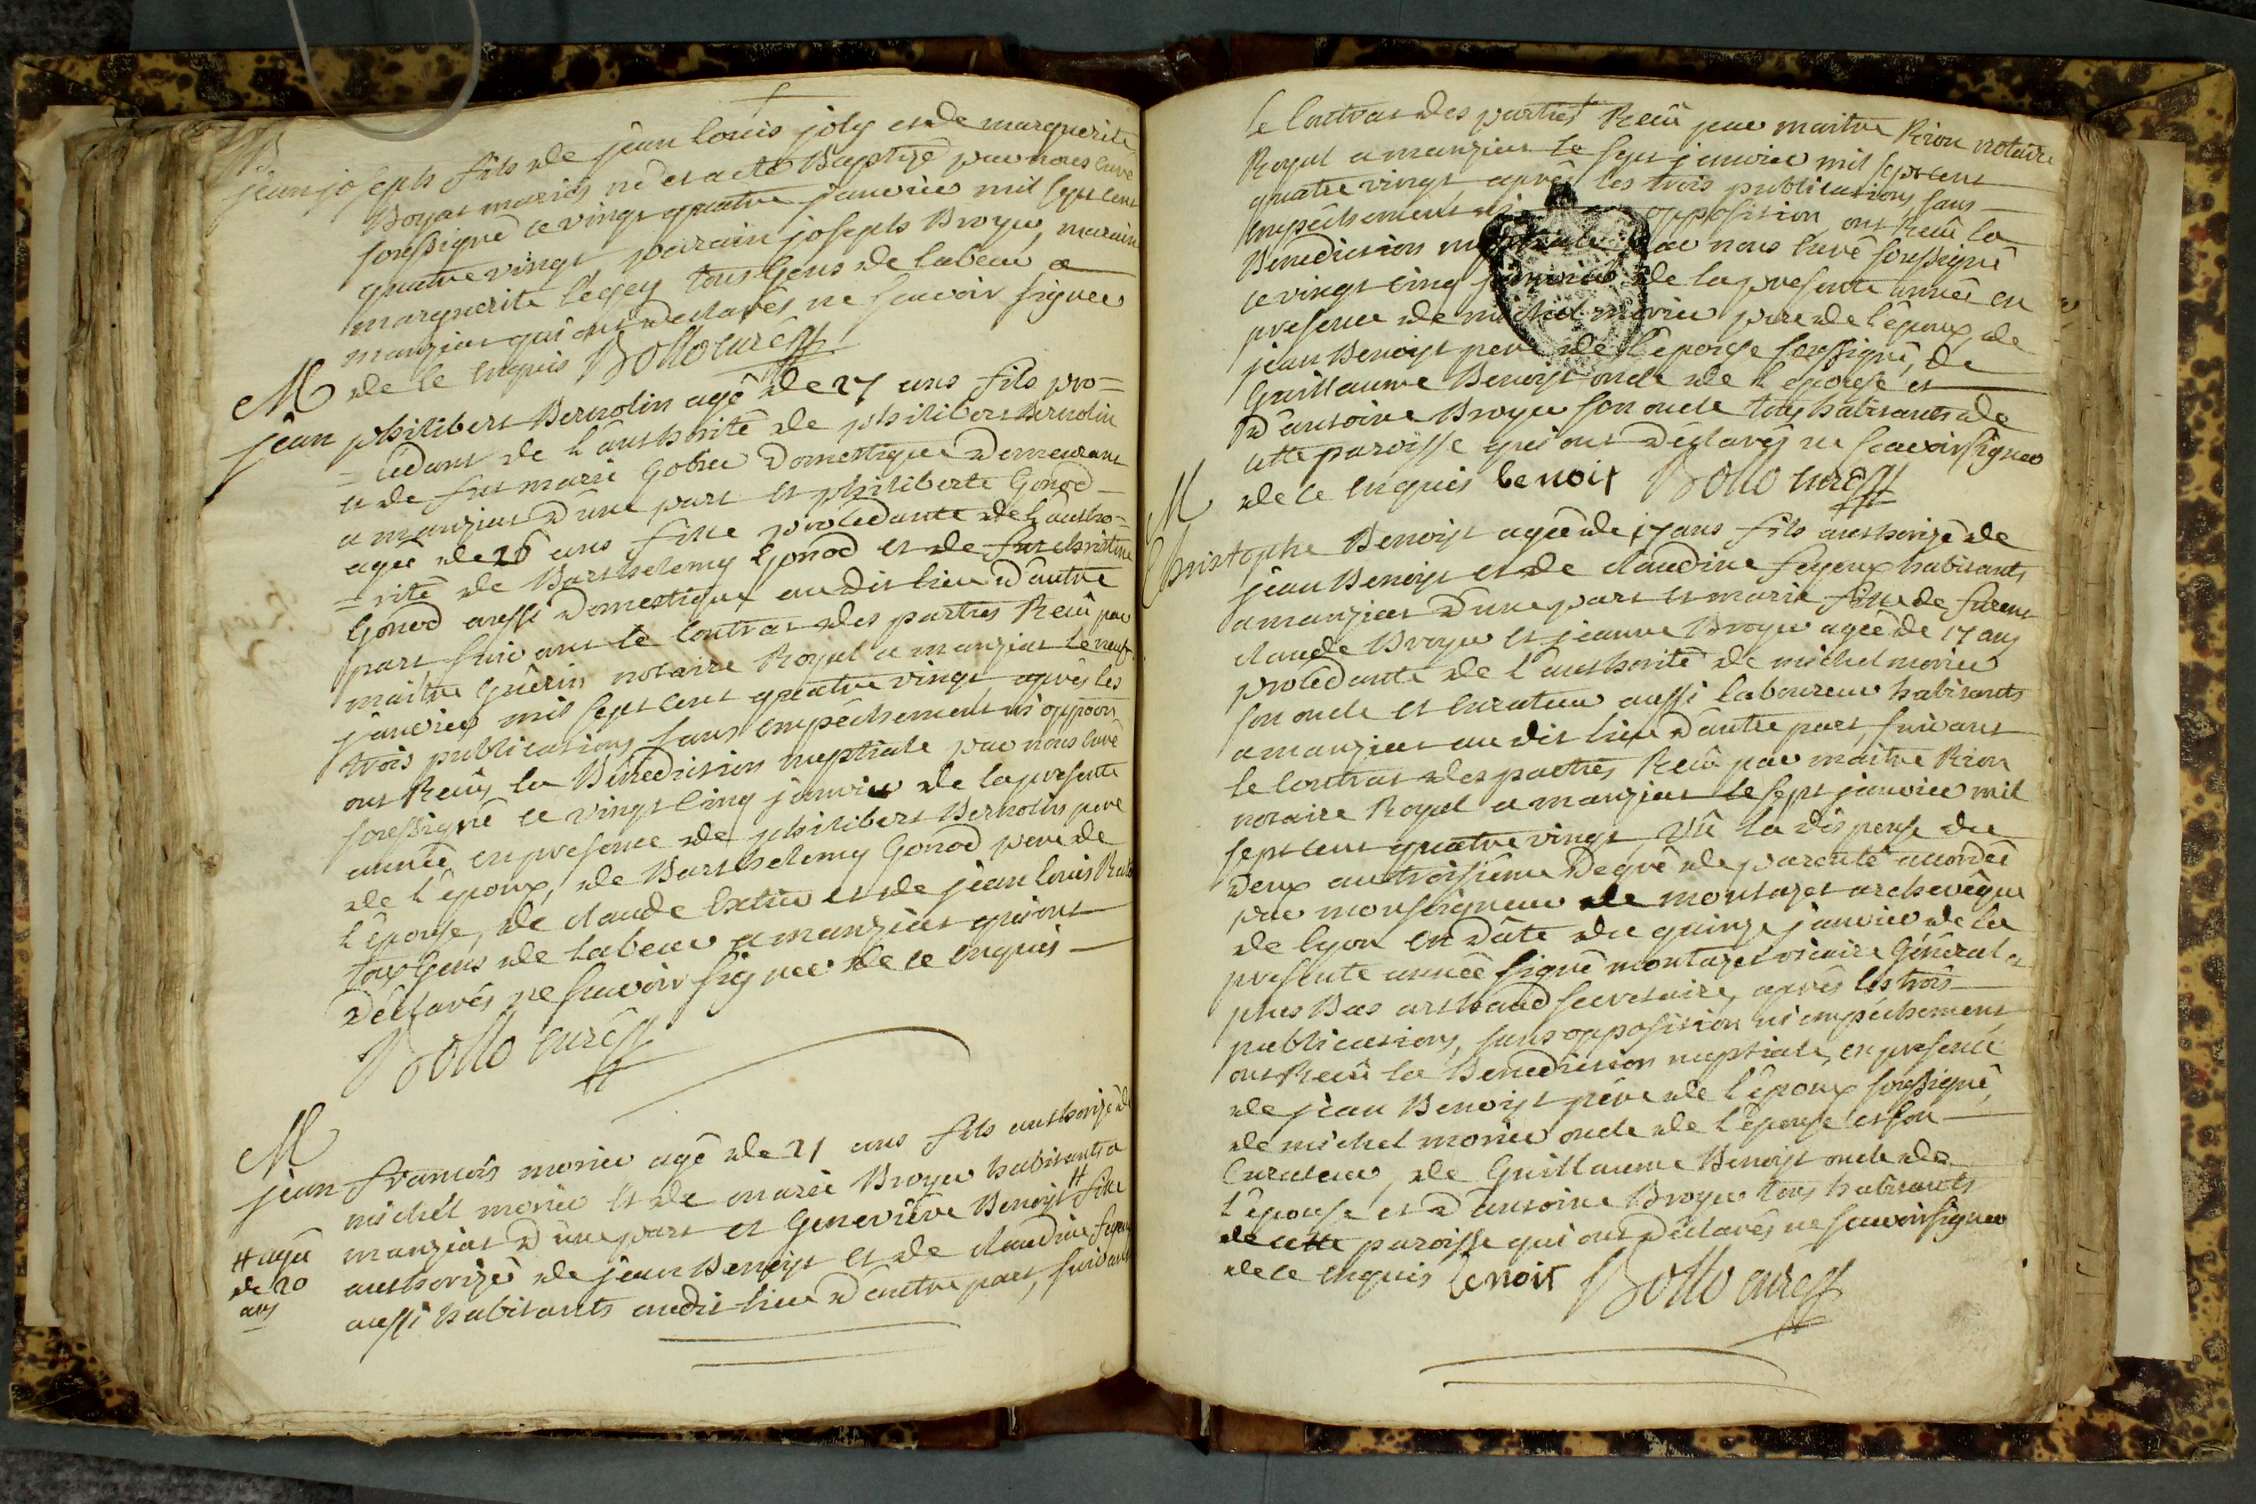 B
jean joseph fils de jean louis joly et de marguerite
Boyat mariés né et a eté Baptizé par nous curé
soussigné ce vingt quatre janvier mil sept cent
quatre vingt, parain joseph Broyer, maraine
marguerite legey tous Gens de labeur a
manziat qui ont declarés ne scavoir signer
de ce enquis Bollo curé
M
jean philibert Bernolin agé de 27 ans fils pro=
=cedant de l'authorité de philibert Bernolin
et de fut marie Gobier Domestique Demeurant
a manziat d'une part et philiberte Gonod
agée de 26 ans fille procedante de l'autho=
=rité de Barthelemy Gonod et de fut christine
Gonod aussi Domestique au dit lieu d'autre
part suivant le contrat des parties Recû par
maitre Guérin notaire Royal a manziat le neuf
janvier mil sept cent quatre vingt après les
trois publications sans empêchement ni oppôon
ont Recûs la Bénédiction nuptiale par nous curé
soussigné ce vingt cinq janvier de la presente
année, en presence de philibert Bernolin pere
de l'époux, de Barthelemy Gonod pere de
l'épouse, de claude Extier et de jean louis
tous Gens de labeur a manziat qui ont
déclarés ne scavoir signer de ce enquis
Bollo curé
M
jean francois morier agé de 21 ans fils authorizé de
michel morier et de marie Broyer habitants a
manziat d'une part et Geneviève Benoist # fille
# agée
de 20
ans
authorizée de jean Benoist et de claudine feyeux
aussi habitants audit lieu d'autre part, suivant
le Contrat des parties Recû par maitre Rion notaire
Royal a manziat le sept janvier mil sept cent
quatre vingt, après les trois publications sans
empêchement ni opposition ont Recû la
Bénédiction nuptiale par nous curé soussigné
ce vingt cinq janvier de la presente année en
presence de michel morier pere de l'époux, de
jean Benoist pere de l'épouse soussigné, de
Guillaume Benoist oncle de l'épouse et
d'antoine Broyer son oncle tous habitants de
cette paroisse qui ont déclarés ne scavoir signer
de ce enquis benoit Bollo curé
M
Christophe Benoist agé de 17 ans fils authorizé de
jean Benoist et de claudine feyeux habitants
a manziat d'une part et marie fille de furent
claude Broyer et jeanne Broyer agée de 17 ans
procedante de l'authorité de michel morier
son oncle et curateur aussi laboureur habitants
a manziat au dit lieu d'autre part, suivant
le contrat des parties Recû par maitre Rion
notaire Royal a manziat le sept janvier mil
sept cent quatre vingt, Vû la dispense du
Deux au troisième Degré de parenté accordée
par monseigneur de montazet archevêque
de lyon en date du quinze janvier de la
presente année signé montazet vicaire Général
plus Bas arthaud secretaire, après les trois
publications, sans opposition ni empêchement
ont Recû la Bénédiction nuptiale, en presence
de jean Benoist père de l'époux soussigné,
de michel morier oncle de l'épouse et son
Curateur, de Guillaume Benoist oncle de
l'épouse et d'antoine Broyer tous habitants
de cette paroisse qui ont déclarés ne scavoir signer
de ce enquis benoit Bollo curé